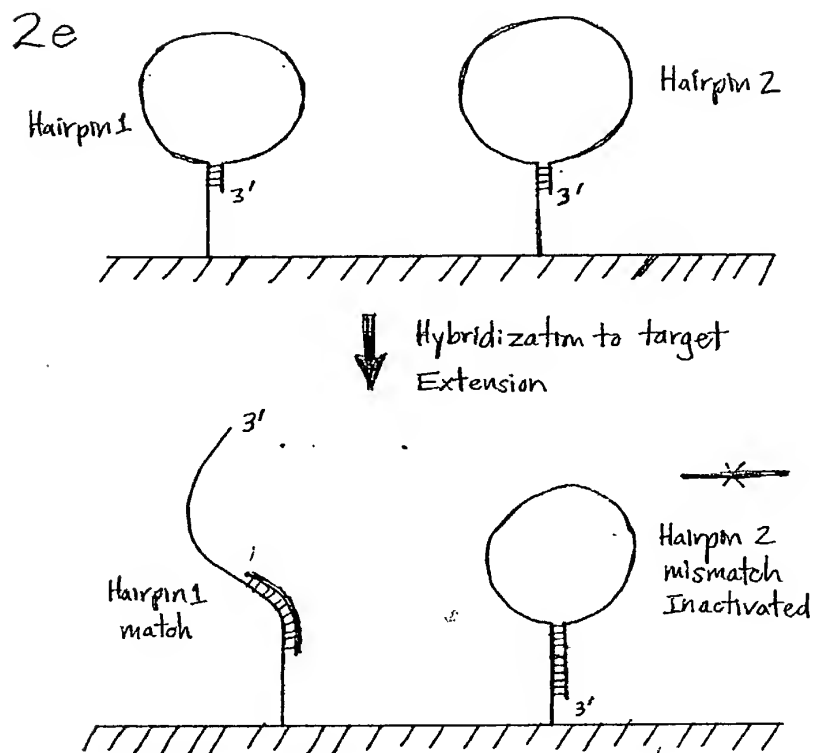 2e
Hairpin 1
Hairpin 2
3'
3'
Hybridization to target
Extension
3'
Hairpin 1
match
Hairpin 2
mismatch
Inactivated
3'